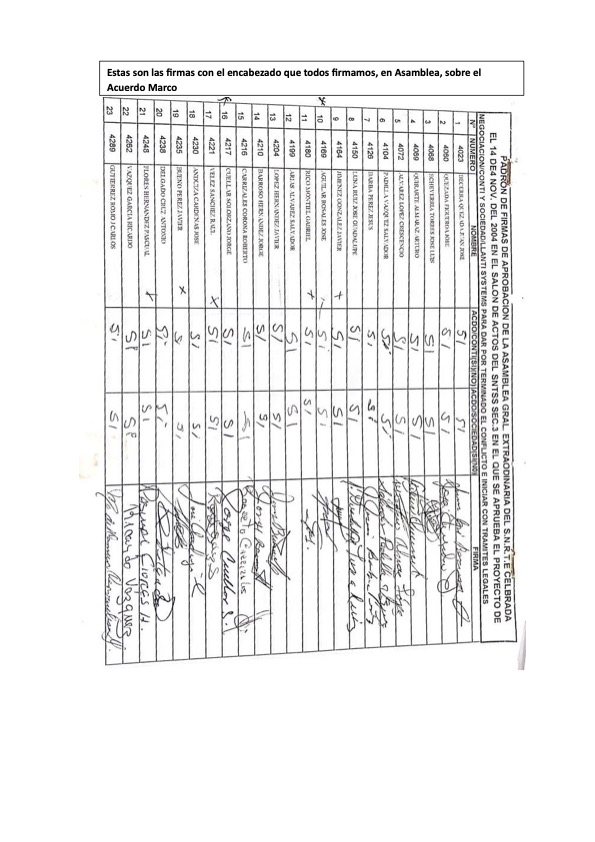 Estas son las firmas con el encabezado que todos firmamos, en Asamblea, sobre el
Acuerdo Marco
PADRON DE FIRMAS DE APROBACION DE LA ASAMBLEA GRAL. EXTRAODINARIA DEL S.N.R.T.E CELBRADA
EL 14 DE4 NOV. DEL 2004 EN EL SALON DE ACTOS DEL SNTSS SEC.3 EN EL QUE SE APRUEBA EL PROYECTO DE
NEGOCIACION/CONTI Y SOCIEDAD/LLANTI SYSTEMS PARA DAR POR TERMINADO EL CONFLICTO E INICIAR CON TRAMITES LEGALES
Nº NUMERO NOMBRE ACDO/CONTI(SI)(NO) ACDO/SOCIEDAD(SI)(NO) FIRMA
1 4023 BECERRA QUEZADA JUAN JOSE SI SI
2 4060 QUEZADA FIGUEROA JOSE SI SI
3 4068 ECHEVERRIA TORRES JOSE LUIS SI SI
4 4069 QUIRARTE ALMARAZ ARTURO SI SI
5 4072 ALVAREZ LOPEZ CRESCENCIO SI SI
6 4104 PADILLA VAZQUEZ SALVADOR Si Si
7 4126 IBARRA PEREZ JESUS Si Si
8 4150 LUNA RUIZ JOSE GUADALUPE SI SI
9 4164 JIMENEZ GONZALEZ JAVIER SI SI
10 4169 AGUILAR ROSALES JOSE SI SI
11 4180 RICO MONTIEL GABRIEL SI SI
12 4199 ARIAS ALVAREZ SALVADOR SI SI
13 4204 LOPEZ HERNANDEZ JAVIER SI SI
14 4210 BARROSO HERNANDEZ JORGE SI SI
15 4216 CARRIZALES CORONA ROBERTO SI SI
16 4217 CUELLAR SOLORZANO JORGE SI SI
17 4221 VELEZ SANCHEZ RAUL SI SI
18 4230 ANZUZA CARDENAS JOSE SI SI
19 4235 BUENO PEREZ JAVIER Si Si
20 4238 DELGADO CRUZ ANTONIO Si Si
21 4245 FLORES HERNANDEZ PASCUAL SI SI
22 4262 VAZQUEZ GARCIA RICARDO SI SI Ricardo Vazquez
23 4289 GUTIERREZ ROMO J CARLOS Si Si